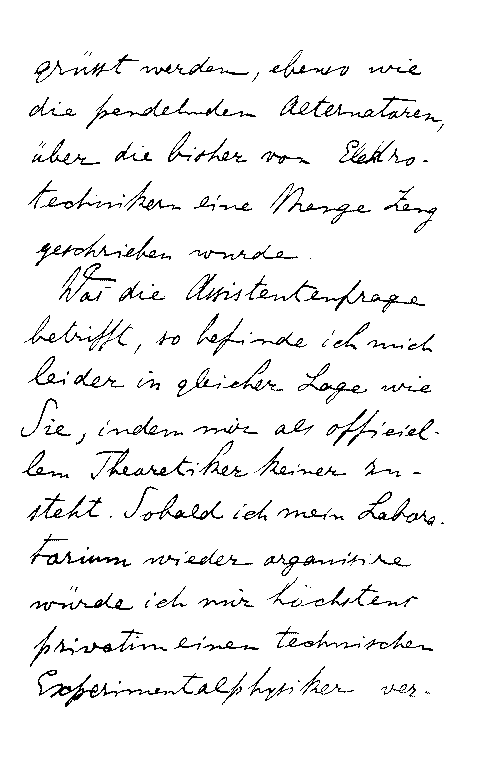 grüsst werden, ebenso wie
die pendelnden Alternatoren,
über die bisher von Elektro-
technikern eine Menge Zeug
geschrieben wurde.
Was die Assistentenfrage
betrifft, so befinde ich mich
leider in gleicher Lage wie
Sie, indem mir als officiel-
lem Theoretiker keiner zu-
steht. Sobald ich mein Labora-
torium wieder organisire
würde ich mir höchstens
privatim einen technischen
Experimentalphysiker ver-